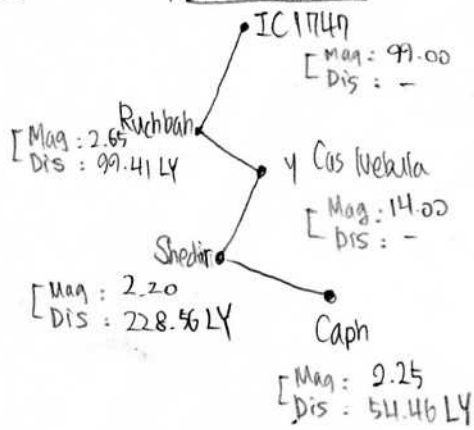 IC 1747
Mag: 99.00
Dis: -
Ruchbah
Mag: 2.65
Dis: 99.41 LY
γ Cas Nebula
Mag: 14.00
Dis: -
Shedir
Mag: 2.20
Dis: 228.56 LY
Caph
Mag: 2.25
Dis: 54.46 LY